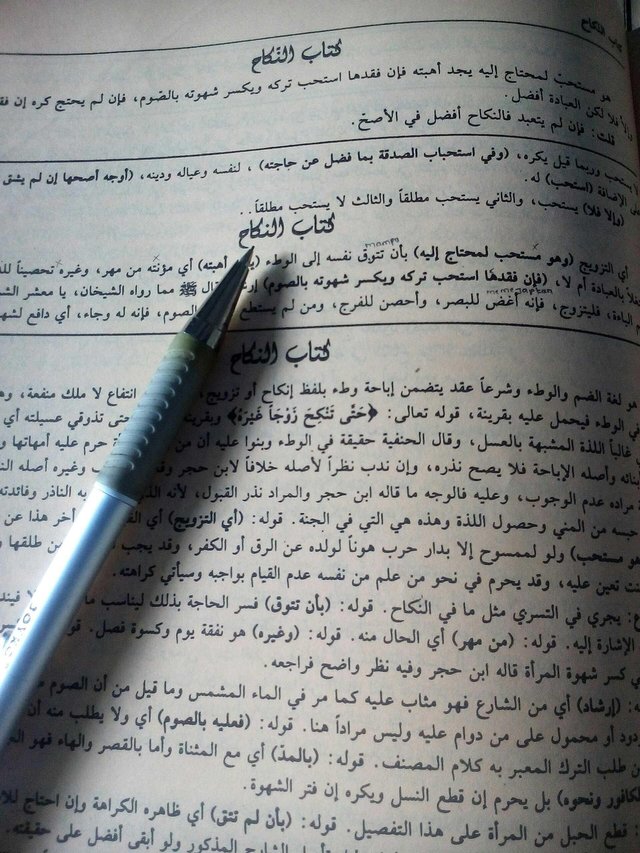 كتاب النكاح
كتاب النّكاح
هو مستحبّ لمحتاج إليه يجد أهبته فإن فقدها استحب تركه ويكسر شهوته بالصّوم، فإن لم يحتج كره إن فقد
فلا لكن العبادة أفضل.
قلت: فإن لم يتعبد فالنكاح أفضل في الأصحّ.
يستحب وربما قيل يكره، (وفي استحباب الصدقة بما فضل عن حاجته) ، لنفسه وعياله ودينه، (أوجه أصحها إن لم يشق
الإضافة (استحب) له.
(وإلا فلا) يستحب، والثاني يستحب مطلقاً والثالث لا يستحب مطلقاً..
كتاب النكاح
mampu
أي التزويج (وهو مستحب لمحتاج إليه) بأن تتوق نفسه إلى الوطء أهبته) أي مؤنته من مهر، وغيره تحصيناً
بالعبادة أم لا، (فإن فقدها استحب تركه ويكسر شهوته بالصوم) قال ﷺ مما رواه الشيخان، يا معشر
memejapkan
الباءة، فليتزوج، فإنه أغض للبصر، وأحصن للفرج، ومن لم يستطع الصوم، فإنه له وجاء، أي دافع
كتاب النكاح
هو لغة الضم والوطء وشرعاً عقد يتضمن إباحة وطء بلفظ إنكاح أو تزويج، انتفاع لا ملك منفعة،
في الوطء فيحمل عليه بقرينة، قوله تعالى: ﴿حَتَّى تَنْكِحَ زَوْجَاً غَيْرَهُ﴾ وبقرينة حتى تذوقي عسيلته أي
غالباً اللذة المشبهة بالعسل، وقال الحنفية حقيقة في الوطء وبنوا عليه أن من حرم عليه أمهاتها
بنائه وأصله الإباحة فلا يصح نذره، وإن ندب نظراً لأصله خلافاً لابن حجر وغيره أصله
مراده عدم الوجوب، وعليه فالوجه ما قاله ابن حجر والمراد نذر القبول، لأنه به الناذر وفائدته
حبسه من المني وحصول اللذة وهذه هي التي في الجنة. قوله: (أي التزويج) أي أخر هذا عن
هو مستحب) ولو لممسوح إلا بدار حرب هوناً لولده عن الرق أو الكفر، وقد يجب طلقها
تعين عليه، وقد يحرم في نحو من علم من نفسه عدم القيام بواجبه وسيأتي كراهته.
يجري في التسري مثل ما في النكاح. قوله: (بأن تتوق) فسر الحاجة بذلك ليناسب ما
الإشارة إليه. قوله: (من مهر) أي الحال منه. قوله: (وغيره) هو نفقة يوم وكسوة فصل.
في كسر شهوة المرأة قاله ابن حجر وفيه نظر واضح فراجعه.
(إرشاد) أي من الشارع فهو مثاب عليه كما مر في الماء المشمس وما قيل من أن الصوم
أو محمول على من دوام عليه وليس مراداً هنا. قوله: (فعليه بالصوم) أي ولا يطلب منه
من طلب الترك المعبر به كلام المصنف. قوله: (بالمدّ) أي مع المثناة وأما بالقصر والهاء فهو
الكافور ونحوه) بل يحرم إن قطع النسل ويكره إن فتر الشهوة.
قطع الحبل من المرأة على هذا التفصيل. قوله: (بأن لم تتق) أي ظاهره الكراهة وإن احتاج
الشارح المذكور ولو أبقى أفضل على حقيقته.